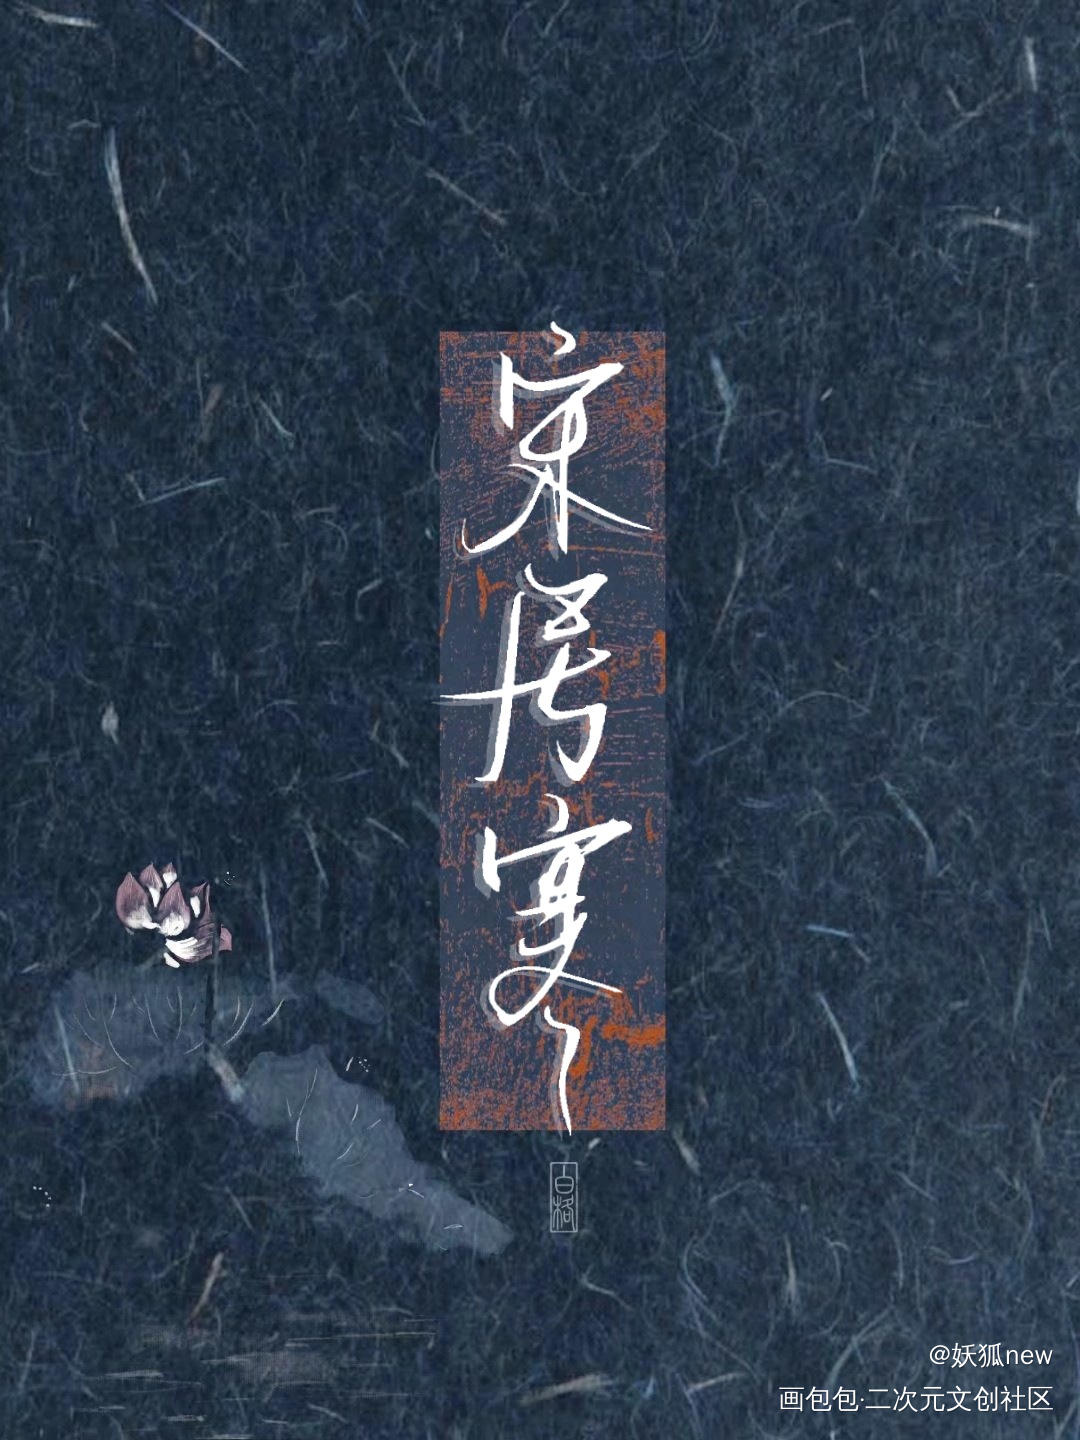 宋居寒
白格
@妖狐new
画包包·二次元文创社区